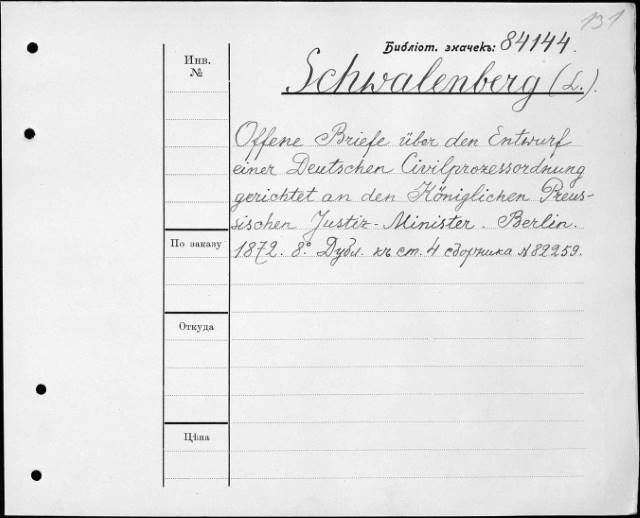 131
Библіот. значекъ: 84144.
Инв.
№
Schwalenberg (L.).
Offene Briefe über den Entwurf
einer Deutschen Civilprozessordnung
gerichtet an den Königlichen Preus-
sischen Justiz-Minister. Berlin.
По заказу
1872. 8º. Дубл. къ ст. 4 сборника №82259.
Откуда
Цѣна